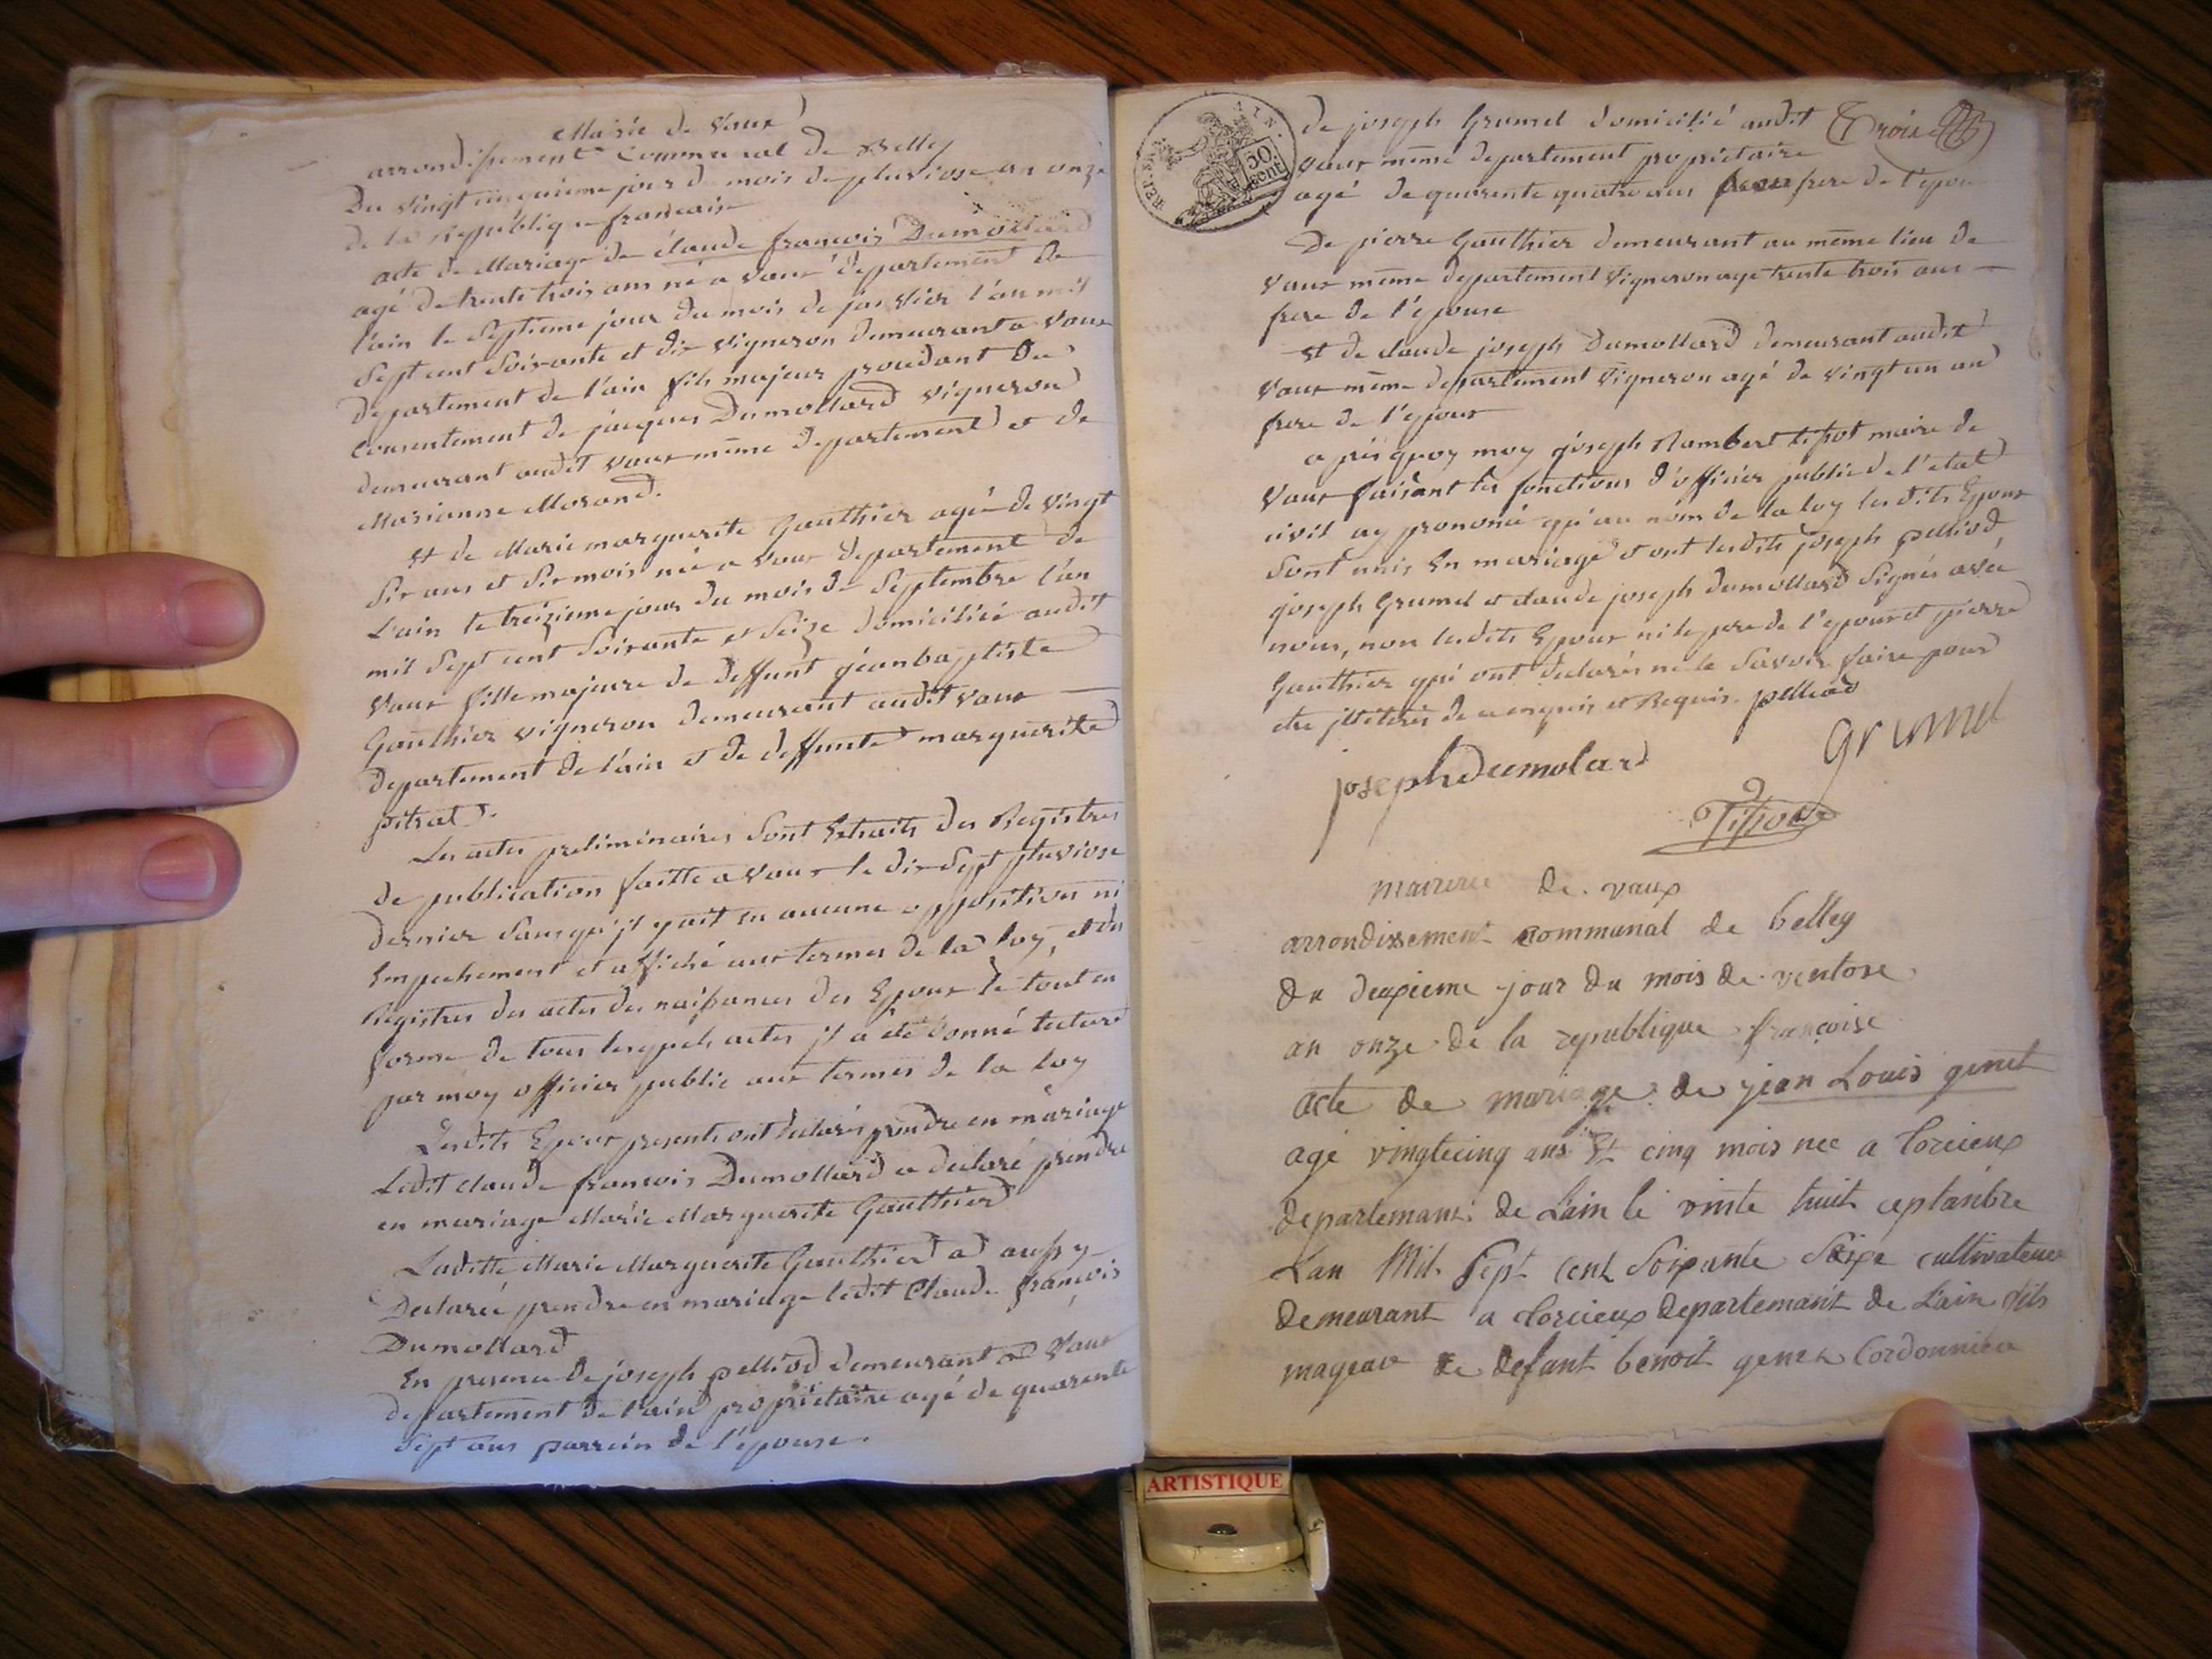 Mairie de Vaux
arrondissement Communal de Belley
Du Vingt cinquieme jour du mois de pluviose an onze
de la Republique francaise
acte de Mariage de claude francois Dumollard
agé de trente trois ans né a Vaux departement de
l'ain le Septieme jour du mois de janvier l'an mil
Sept cent Soixante et dix Vigneron demeurant a Vaux
departement de l'ain fils majeur procédant du
Consentement de jacques Dumollard Vigneron
demeurant audit Vaux même departement et de
Marianne Morand.
Et de Marie marguerite Gauthier agée de Vingt
Six ans et Six mois née a Vaux departement de
L'ain le treizieme jour du mois de Septembre l'an
mil Sept cent Soixante et Seize domiciliée audit
Vaux fille majeure de deffunt jéanbaptiste
Gauthier Vigneron demeurant audit Vaux
departement de l'ain et de deffunte marguerite
pitrat.
Les actes preliminaires Sont Extraits des Registres
de publication faitte a Vaux le dix Sept pluviose
dernier Sans qu'jl y ait eu aucune opposition ni
Empechement et affiché aux termes de la loy, et des
Registres des actes des naissances des Epoux le tout en
forme de tous lesquels actes jl a été donné lecture
par moy officier public aux termes de la loy
Lesdits Epoux presents ont declarés prendre en mariage
Ledit claude francois Dumollard a declaré prendre
en mariage Marie Marguerite Gauthier
Laditte Marie Marguerite Gauthier a aussy
Declarée prendre en mariage ledit Claude françois
Dumollard
En presence de joseph pelliod demeurant a Vaux
departement de l'ain proprietaire agé de quarente
Sept ans parrein de l'epouse.
REP. FRA. AIN.
50 cent
de joseph Grumel domicilié audit Troise
Vaux même departement proprietaire
agé de quarente quatre ans beaufrere de l'epoux
De pierre Gauthier demeurant au même lieu de
Vaux meme departement Vigneron age trente trois ans
frere de l'epouse
Et de claude joseph Dumollard demeurant audit
Vaux même departement Vigneron agé de vingt un an
frere de l'epoux
apres quoy moy joseph Rambert tissot maire de
Vaux faisant les fonctions d'officier public de l'etat
civil ay prononcé qu'au nom de la loy lesdits Epoux
Sont unis En mariage et ont lesdits joseph pelliod,
joseph Grumel et claude joseph dumollard Signés avec
nous, non lesdits Epoux ni le pere de l'epoux et pierre
Gauthier qui ont declarés ne le Savoir faire pour
etre jlletérés de ce enquis et Requis. pelliod
joseph dumolard
grumel
Tissot
mairerie de vaux
arrondissement communal de belley
du deuxieme jour du mois de ventose
an onze de la republique françoise
acte de mariage de jean Louis genet
agé vingtecinq ans Et cinq mois nee a Torcieux
departemant de L'ain le vinte huit ceptanbre
L'an Mil Sept cent Soixante Seize cultivateur
demeurant a torcieux departemant de L'ain fils
mageur de defant benoit genet Cordonnier
ARTISTIQUE